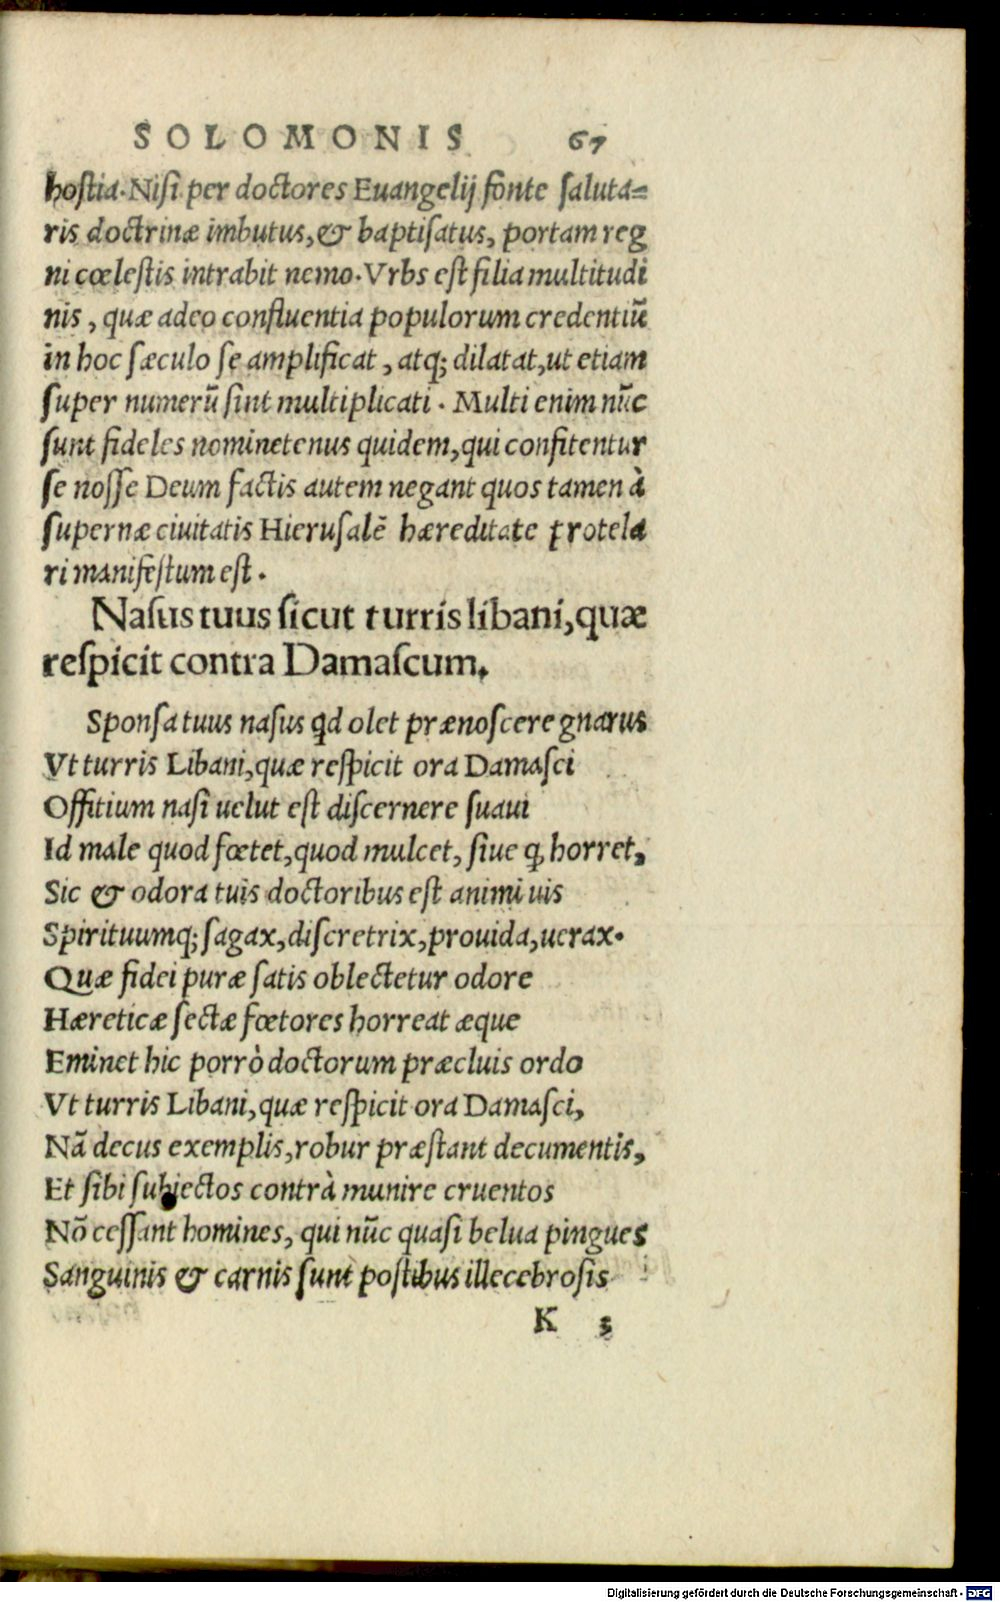 SOLOMONIS 67
hostia. Nisi per doctores Euangelij fonte saluta=
ris doctrinæ imbutus, & baptisatus, portam reg
ni cœlestis intrabit nemo. Vrbs est filia multitudi
nis, quæ adeo confluentia populorum credentiũ
in hoc sæculo se amplificat, atq; dilatat, ut etiam
super numerũ sint multiplicati. Multi enim nũc
sunt fideles nominetenus quidem, qui confitentur
se nosse Deum factis autem negant quos tamen à
supernæ ciuitatis Hierusalẽ hæreditate protela
ri manifestum est.
Nasus tuus sicut turris libani, quæ
respicit contra Damascum.
Sponsa tuus nasus qd olet prænoscere gnarus
Vt turris Libani, quæ respicit ora Damasci
Offitium nasi uelut est discernere suaui
Id male quod fœtet, quod mulcet, siue q, horret,
Sic & odora tuis doctoribus est animi uis
Spirituumq; sagax, discretrix, prouida, uerax.
Quæ fidei puræ satis oblectetur odore
Hæreticæ sectæ fœtores horreat æque
Eminet hic porrò doctorum præcluis ordo
Vt turris Libani, quæ respicit ora Damasci,
Nã decus exemplis, robur præstant decumentis,
Et sibi subiectos contrà munire cruentos
Nõ cessant homines, qui nũc quasi belua pingues
Sanguinis & carnis sunt postibus illecebrosis
K 3
Digitalisierung gefördert durch die Deutsche Forschungsgemeinschaft - DFG